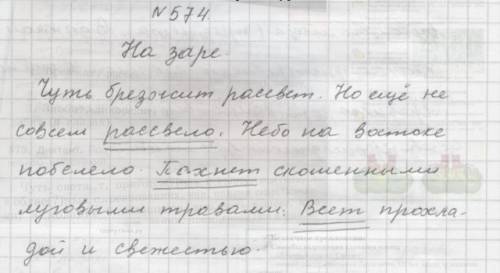 №574.
На заре.
Чуть брезжит рассвет. Но ещё не
совсем рассвело. Небо на востоке
побелело. Пахнет скошенными
луговыми травами. Веет прохла-
дой и свежестью.